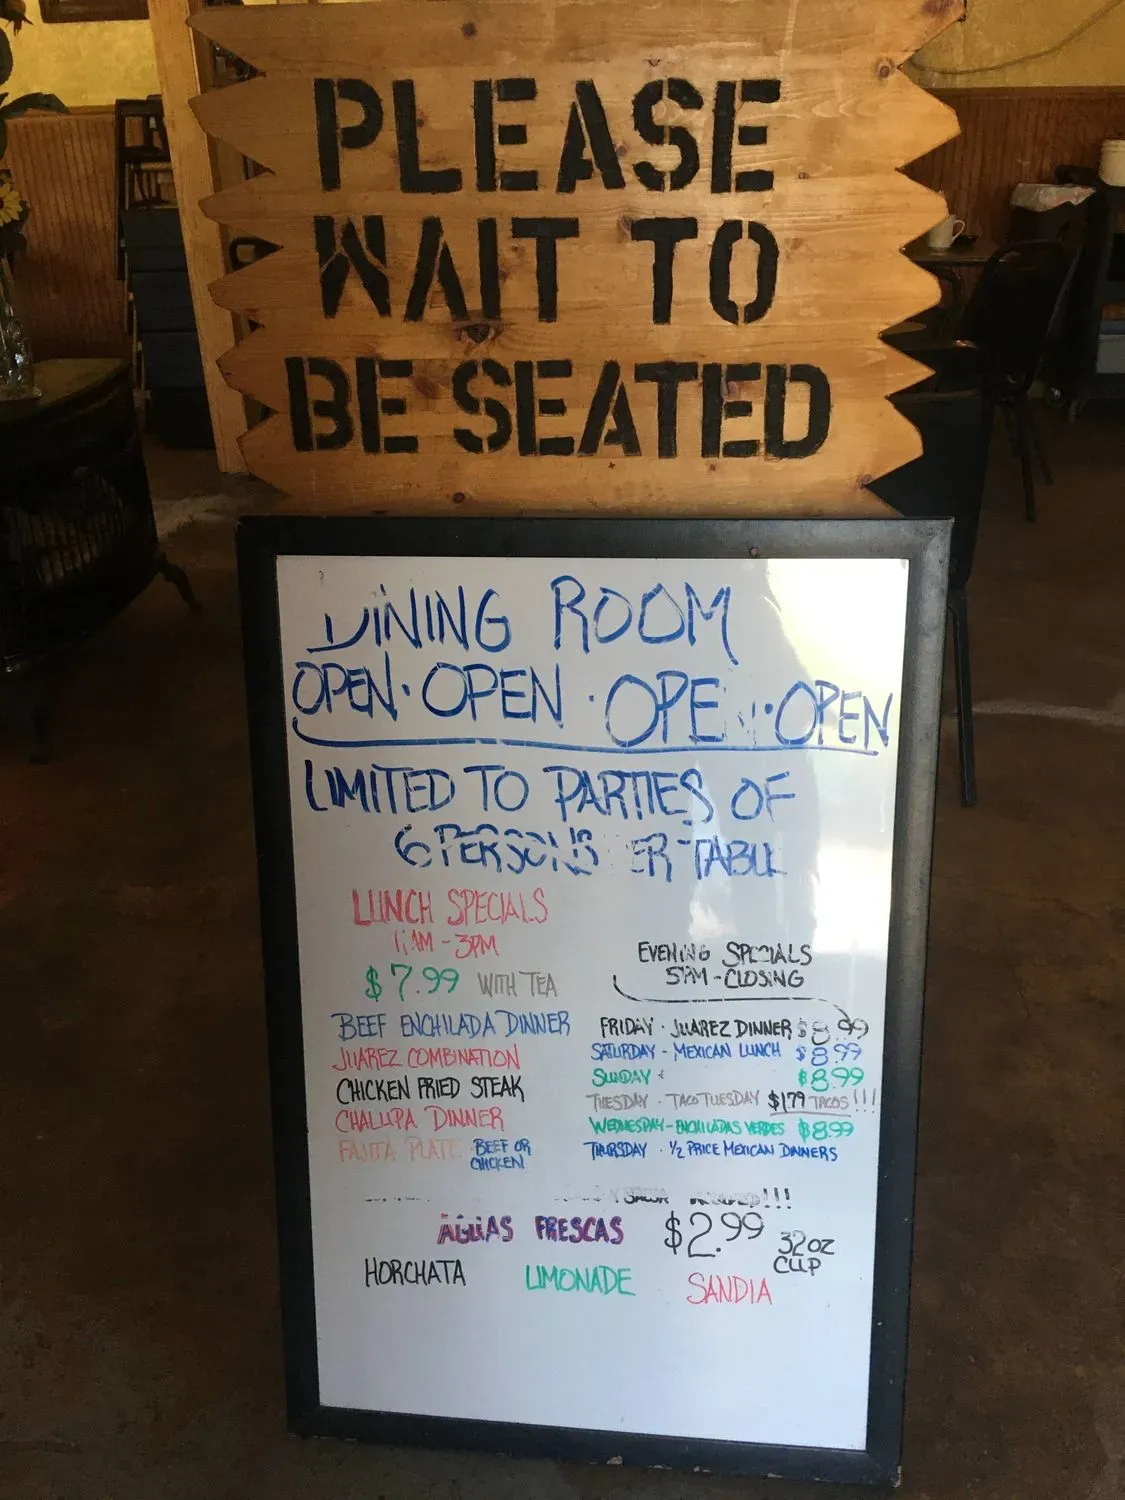 PLEASE
WAIT TO
BE SEATED
DINING ROOM
OPEN · OPEN · OPEN · OPEN
LIMITED TO PARTIES OF
6 PERSONS PER TABLE
LUNCH SPECIALS
11AM - 3PM
$7.99 WITH TEA
BEEF ENCHILADA DINNER
JUAREZ COMBINATION
CHICKEN FRIED STEAK
CHALUPA DINNER
FAJITA PLATE BEEF OR
CHICKEN
EVENING SPECIALS
5PM - CLOSING
FRIDAY · JUAREZ DINNER $8.99
SATURDAY - MEXICAN LUNCH $8.99
SUNDAY $8.99
TUESDAY · TACO TUESDAY $1.79 TACOS!!!
WEDNESDAY - ENCHILADAS VERDES $8.99
THURSDAY · 1/2 PRICE MEXICAN DINNERS
AGUAS FRESCAS $2.99 32OZ
CUP
HORCHATA LIMONADE SANDIA